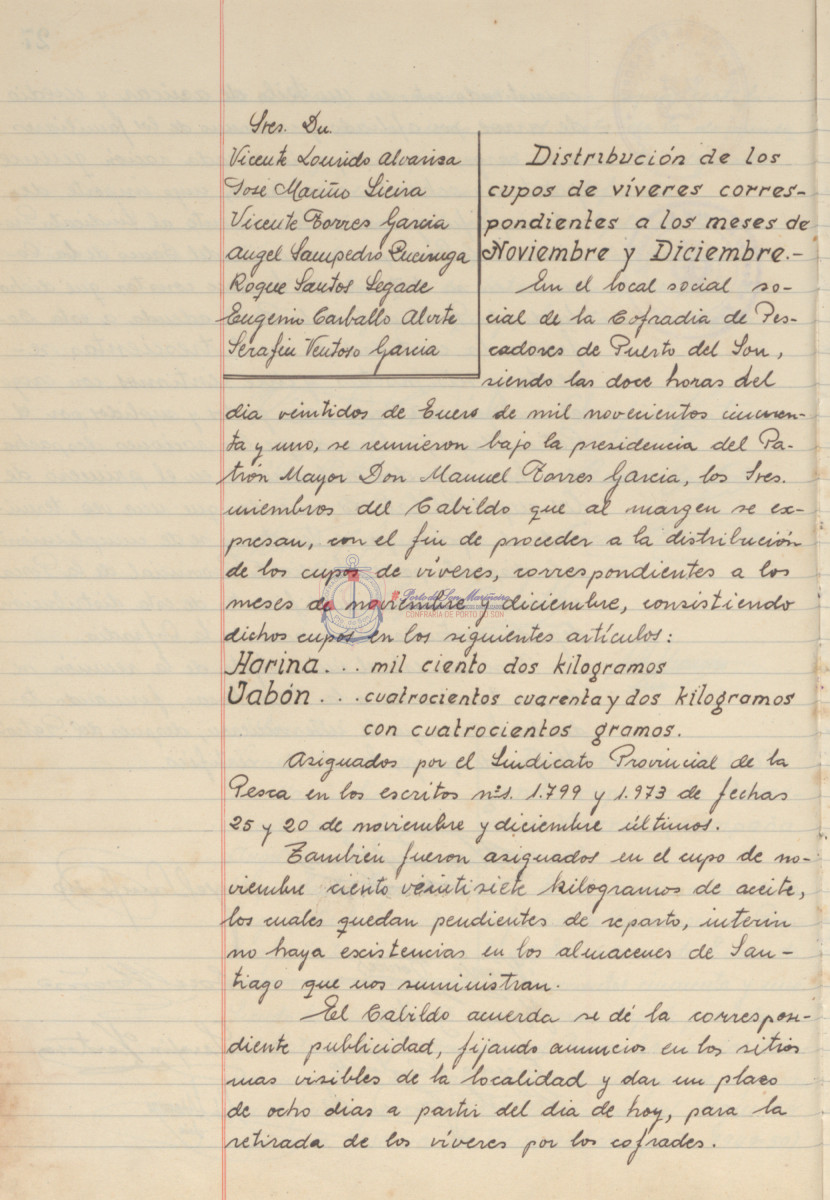 Sres. Dn.
Vicente Lourido Alvariza
José Maciño Sieira
Vicente Torres Garcia
Angel Sampedro Queiruga
Roque Santos Segade
Eugenio Carballo Alvite
Serafin Ventoso Garcia
Distribución de los
cupos de víveres corres-
pondientes a los meses de
Noviembre y Diciembre.-
En el local social so-
cial de la Cofradia de Pes-
cadores de Puerto del Son,
siendo las doce horas del
dia veintidos de Enero de mil novecientos cincuen-
ta y uno, se reunieron bajo la presidencia del Pa-
trón Mayor Don Manuel Torres Garcia, los Sres.
miembros del Cabildo que al margen se ex-
presan, con el fin de proceder a la distribución
de los cupos de víveres, correspondientes a los
meses de noviembre y diciembre, consistiendo
dichos cupos en los siguientes artículos:
Harina... mil ciento dos kilogramos
Jabón... cuatrocientos cuarenta y dos kilogramos
con cuatrocientos gramos.
Asignados por el Sindicato Provincial de la
Pesca en los escritos nºs. 1.799 y 1.973 de fechas
25 y 20 de noviembre y diciembre últimos.
También fueron asignados en el cupo de no-
viembre ciento veintisiete kilogramos de aceite,
los cuales quedan pendientes de reparto, interin
no haya existencias en los almacenes de San-
tiago que nos suministran.
El Cabildo acuerda se dé la correspon-
diente publicidad, fijando anuncios en los sitios
mas visibles de la localidad y dar un plazo
de ocho dias a partir del dia de hoy, para la
retirada de los víveres por los cofrades.
Porto do Son Mariñeiro
CONFRARÍA DE PORTO DO SON